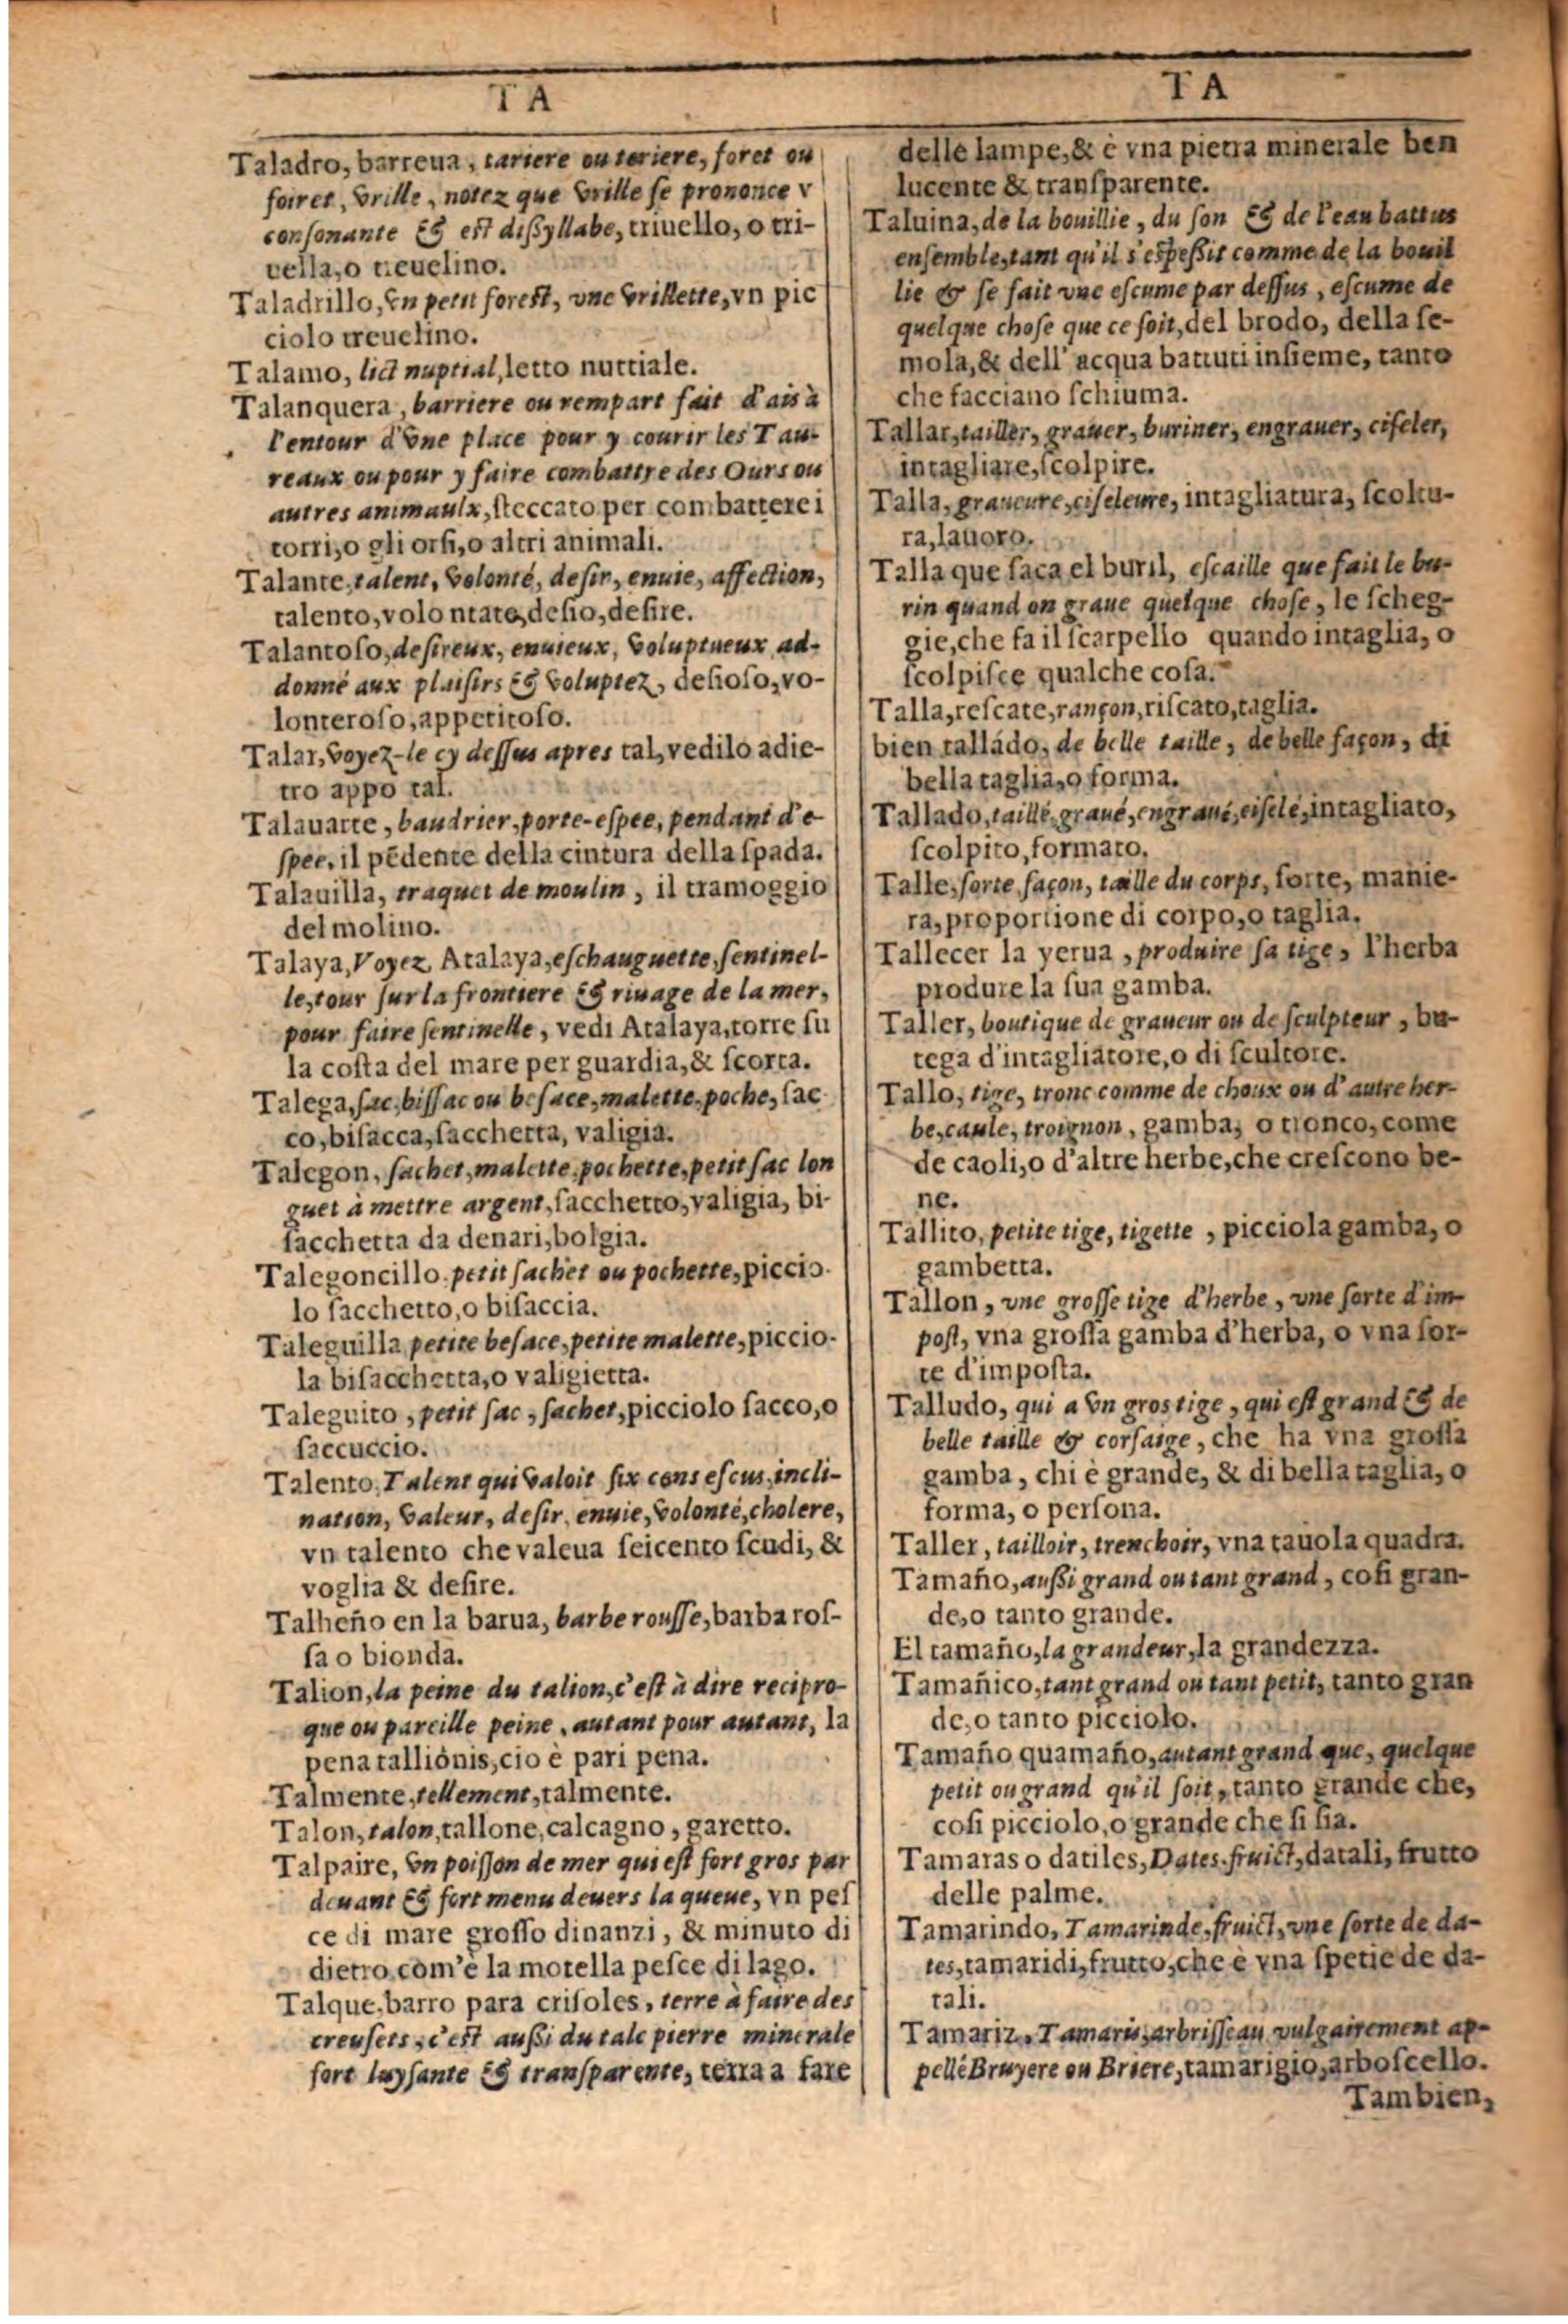 TA
Taladro, barreua, tariere ou teriere, foret ou
foiret, vrille, notez que vrille ſe prononce v
conſonante & eſt diſſyllabe, triuello, o tri-
vella, o treuelino.
Taladrillo, vn petit foreſt, vne vrillette, vn pic
ciolo treuelino.
Talamo, lict nuptial, letto nuttiale.
Talanquera, barriere ou rempart fait d'ais à
l'entour d'vne place pour y courir les Tau-
reaux ou pour y faire combattre des Ours ou
autres animaulx, ſteccato per combattere i
torri, o gli orſi, o altri animali.
Talante, talent, volonté, deſir, enuie, affection,
talento, volontate, deſio, deſire.
Talantoſo, deſireux, enuieux, voluptueux ad-
donné aux plaiſirs & voluptez, deſioſo, vo-
lonteroſo, appetitoſo.
Talar, voyez-le cy deſſus apres tal, vedilo adie-
tro appo tal.
Talauarte, baudrier, porte-eſpee, pendant d'e-
ſpee, il pẽdente della cintura della ſpada.
Talauilla, traquet de moulin, il tramoggio
del molino.
Talaya, Voyez Atalaya, eſchauguette, ſentinel-
le, tour ſur la frontiere & riuage de la mer,
pour faire ſentinelle, vedi Atalaya, torre ſu
la coſta del mare per guardia, & ſcorta.
Talega, ſac, biſſac ou beſace, malette, poche, ſac
co, biſacca, ſacchetta, valigia.
Talegon, ſachet, malette, pochette, petit ſac lon
guet à mettre argent, ſacchetto, valigia, bi-
ſacchetta da denari, bolgia.
Talegoncillo, petit ſachet ou pochette, piccio-
lo ſacchetto, o biſaccia.
Taleguilla petite beſace, petite malette, piccio-
la biſacchetta, o valigietta.
Taleguito, petit ſac, ſachet, picciolo ſacco, o
ſaccuccio.
Talento, Talent qui valoit ſix cens eſcus, incli-
nation, valeur, deſir, enuie, volonté, cholere,
vn talento che valeua ſeicento ſcudi, &
voglia & deſire.
Talheño en la barua, barbe rouſſe, barba roſ-
ſa o bionda.
Talion, la peine du talion, c'eſt à dire recipro-
que ou pareille peine, autant pour autant, la
pena tallionis, cio è pari pena.
Talmente, tellement, talmente.
Talon, talon, tallone, calcagno, garetto.
Talpaire, vn poiſſon de mer qui eſt fort gros par
deuant & fort menu deuers la queue, vn peſ
ce di mare groſſo dinanzi, & minuto di
dietro com'è la motella peſce di lago.
Talque, barro para criſoles, terre à faire des
creuſets, c'eſt auſſi du talc pierre minerale
fort luyſante & tranſparente, terra a fare
TA
delle lampe, & è vna pietra minerale ben
lucente & tranſparente.
Taluina, de la bouillie, du ſon & de l'eau battus
enſemble, tant qu'il s'eſpeſſit comme de la bouil
lie & ſe fait vne eſcume par deſſus, eſcume de
quelque choſe que ce ſoit, del brodo, della ſe-
mola, & dell' acqua battuti inſieme, tanto
che facciano ſchiuma.
Tallar, tailler, grauer, buriner, engrauer, ciſeler,
intagliare, ſcolpire.
Talla, graueure, ciſeleure, intagliatura, ſcoltu-
ra, lauoro.
Talla que ſaca el buril, eſcaille que fait le bu-
rin quand on graue quelque choſe, le ſcheg-
gie, che fa il ſcarpello quando intaglia, o
ſcolpiſce qualche coſa.
Talla, reſcate, rançon, riſcato, taglia.
bien talládo, de belle taille, de belle façon, di
bella taglia, o forma.
Tallado, taillé, graué, engraué, ciſelé, intagliato,
ſcolpito, formato.
Talle, ſorte, façon, taille du corps, ſorte, manie-
ra, proportione di corpo, o taglia.
Tallecer la yerua, produire ſa tige, l'herba
produre la ſua gamba.
Taller, boutique de graueur ou de ſculpteur, bu-
tega d'intagliatore, o di ſcultore.
Tallo, tige, tronc comme de choux ou d'autre her-
be, caule, troignon, gamba, o tronco, come
de caoli, o d'altre herbe, che creſcono be-
ne.
Tallito, petite tige, tigette, picciola gamba, o
gambetta.
Tallon, vne groſſe tige d'herbe, vne ſorte d'im-
poſt, vna groſſa gamba d'herba, o vna ſor-
te d'impoſta.
Talludo, qui a vn gros tige, qui eſt grand & de
belle taille & corſaige, che ha vna groſſa
gamba, chi è grande, & di bella taglia, o
forma, o perſona.
Taller, tailloir, trenchoir, vna tauola quadra.
Tamaño, auſſi grand ou tant grand, coſi gran-
de, o tanto grande.
El tamaño, la grandeur, la grandezza.
Tamañico, tant grand ou tant petit, tanto gran
de, o tanto picciolo.
Tamaño quamaño, autant grand que, quelque
petit ou grand qu'il ſoit, tanto grande che,
coſi picciolo, o grande che ſi ſia.
Tamaras o datiles, Dates, fruict, datali, frutto
delle palme.
Tamarindo, Tamarinde, fruict, vne ſorte de da-
tes, tamaridi, frutto, che è vna ſpetie de da-
tali.
Tamariz, Tamaris, arbriſſeau vulgairement ap-
pellé Bruyere ou Briere, tamarigio, arboſcello.
Tambien,